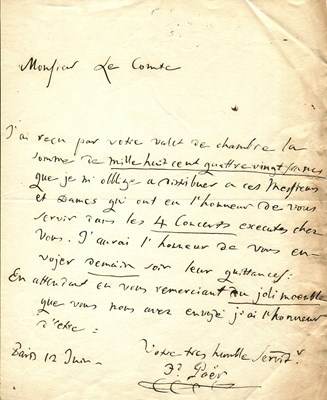 Monsieur Le Comte
J'ai reçu par votre valet de chambre la
somme de mille huit cent quattre vingt francs
que je m'obblige a distribuer a ces Messieurs
et Dames qui ont eu l'honneur de vous
servir dans les 4 Concerts executés chez
Vous. J'aurai l'honneur de vous en-
vojer demain soir leur quittances:
En attendant en vous remerciant du joli meuble
que vous nous avez envojé j'ai l'honneur
d'être =
Votre tres humble Servit.r
Paris 12 Juin.
F. Paër